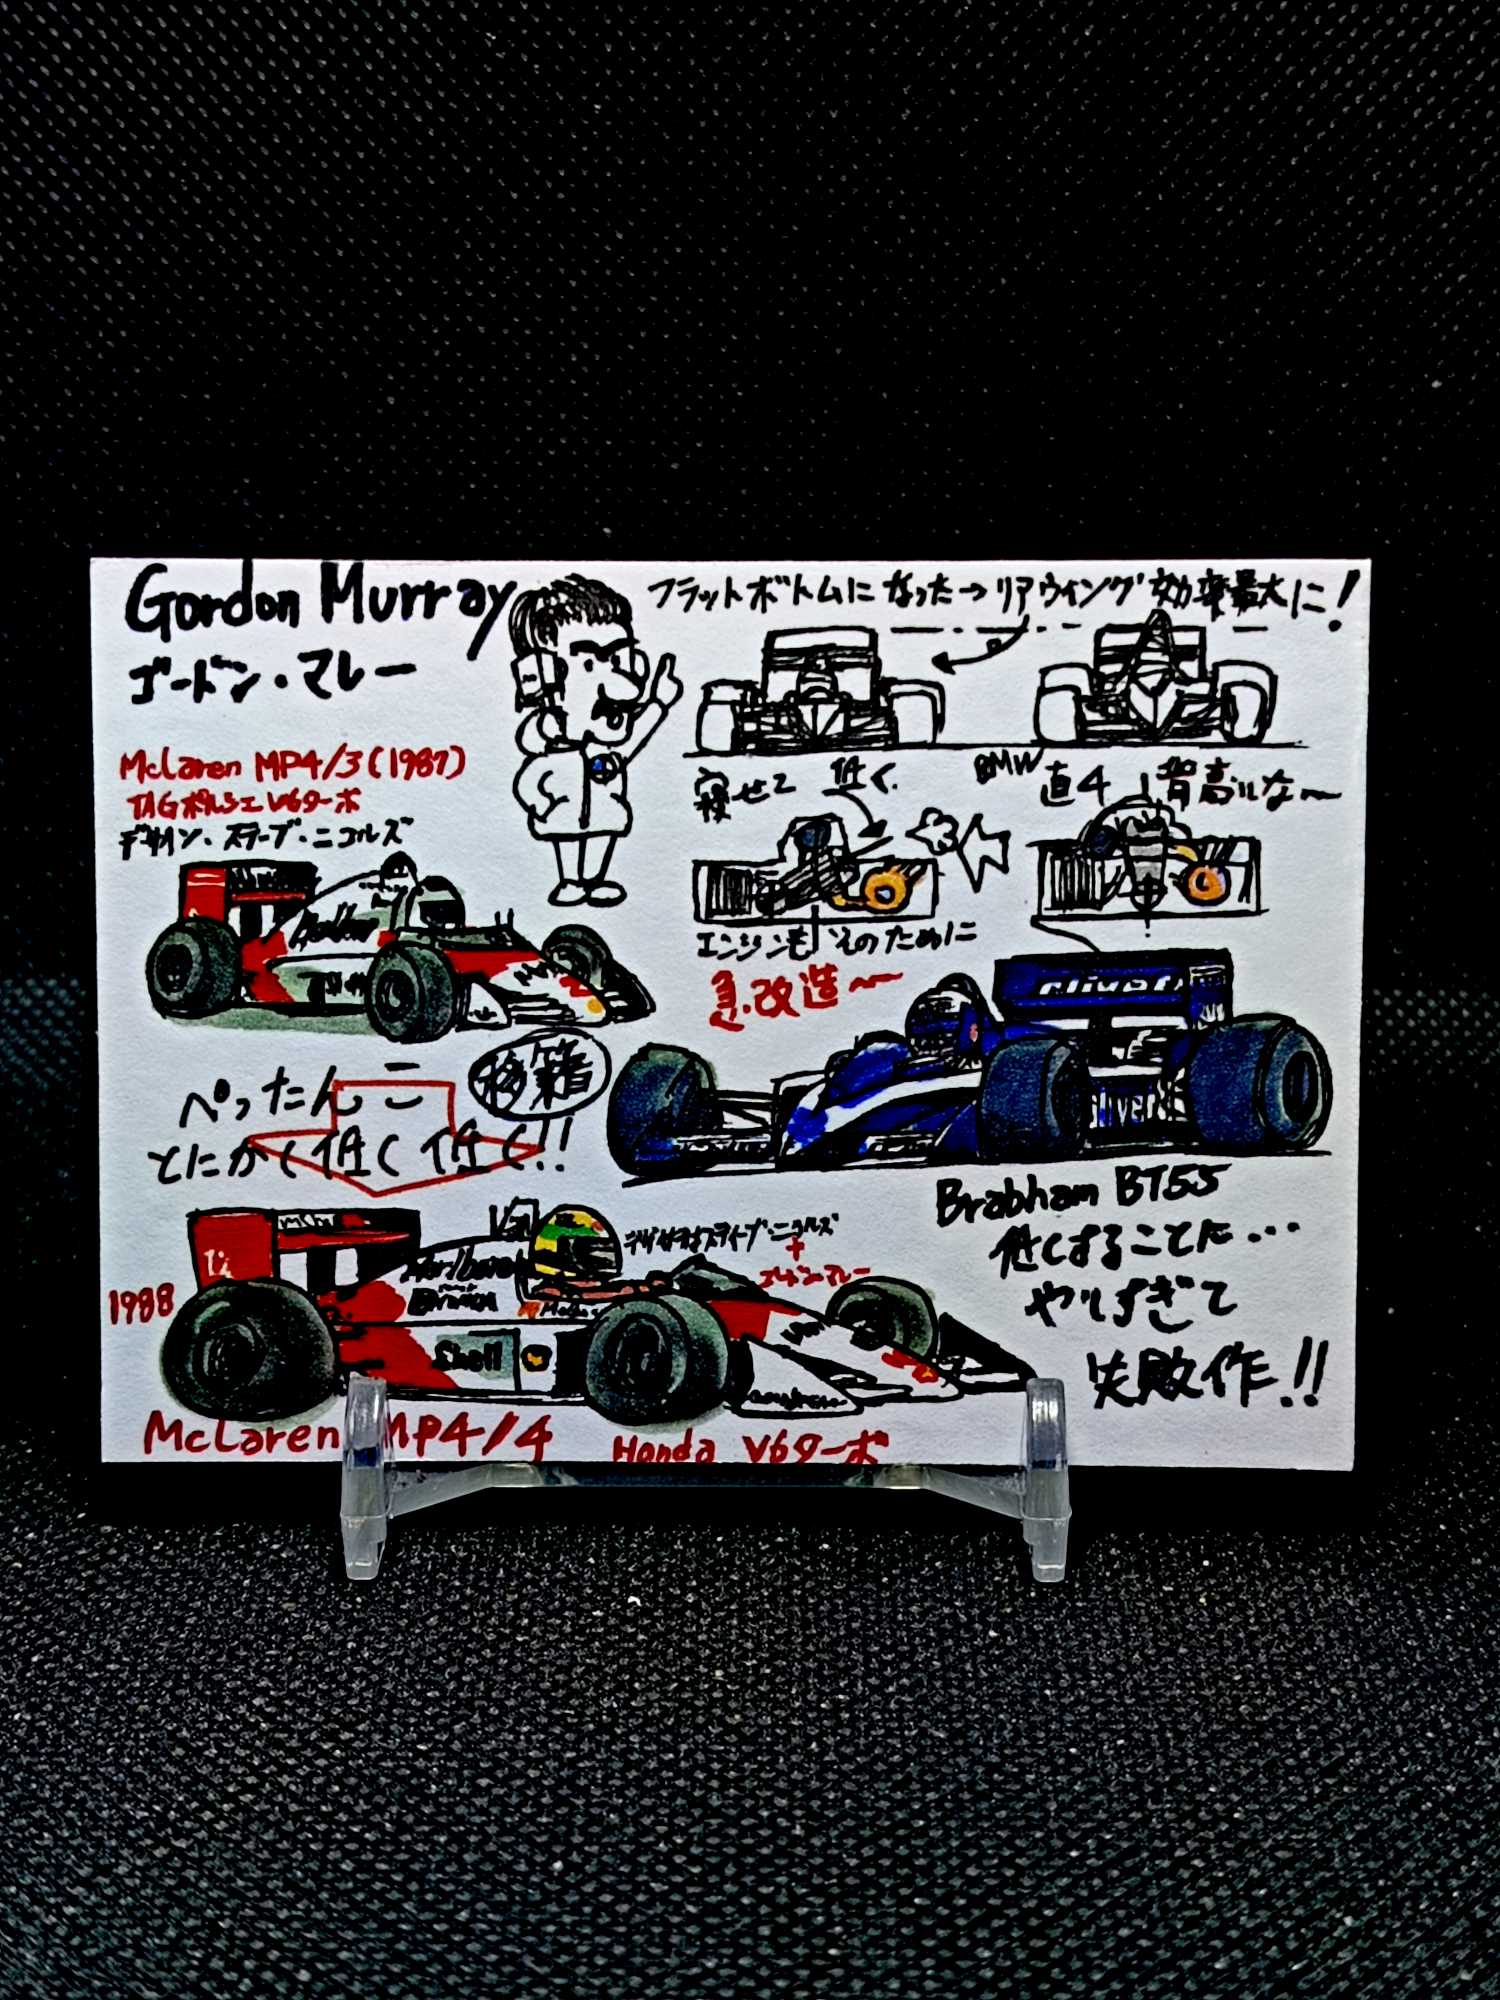 Gordon Murray
ゴードン・マレー
フラットボトムになった→リアウィング効率最大に!
McLaren MP4/3(1987)
TAGポルシェV6ターボ
デザイン・スティーブ・ニコルズ
寝せて 低く
BMW
直4 背高いな〜
エンジンも そのために
急・改造〜
olivetti
移籍
ぺったんこ
とにかく低く低く!!
Brabham BT55
低くすることに…
やりすぎて
失敗作!!
1988
Marlboro
Shell
デザイナーはスティーブ・ニコルズ
+
ゴードンマレー
McLaren MP4/4
Honda V6ターボ